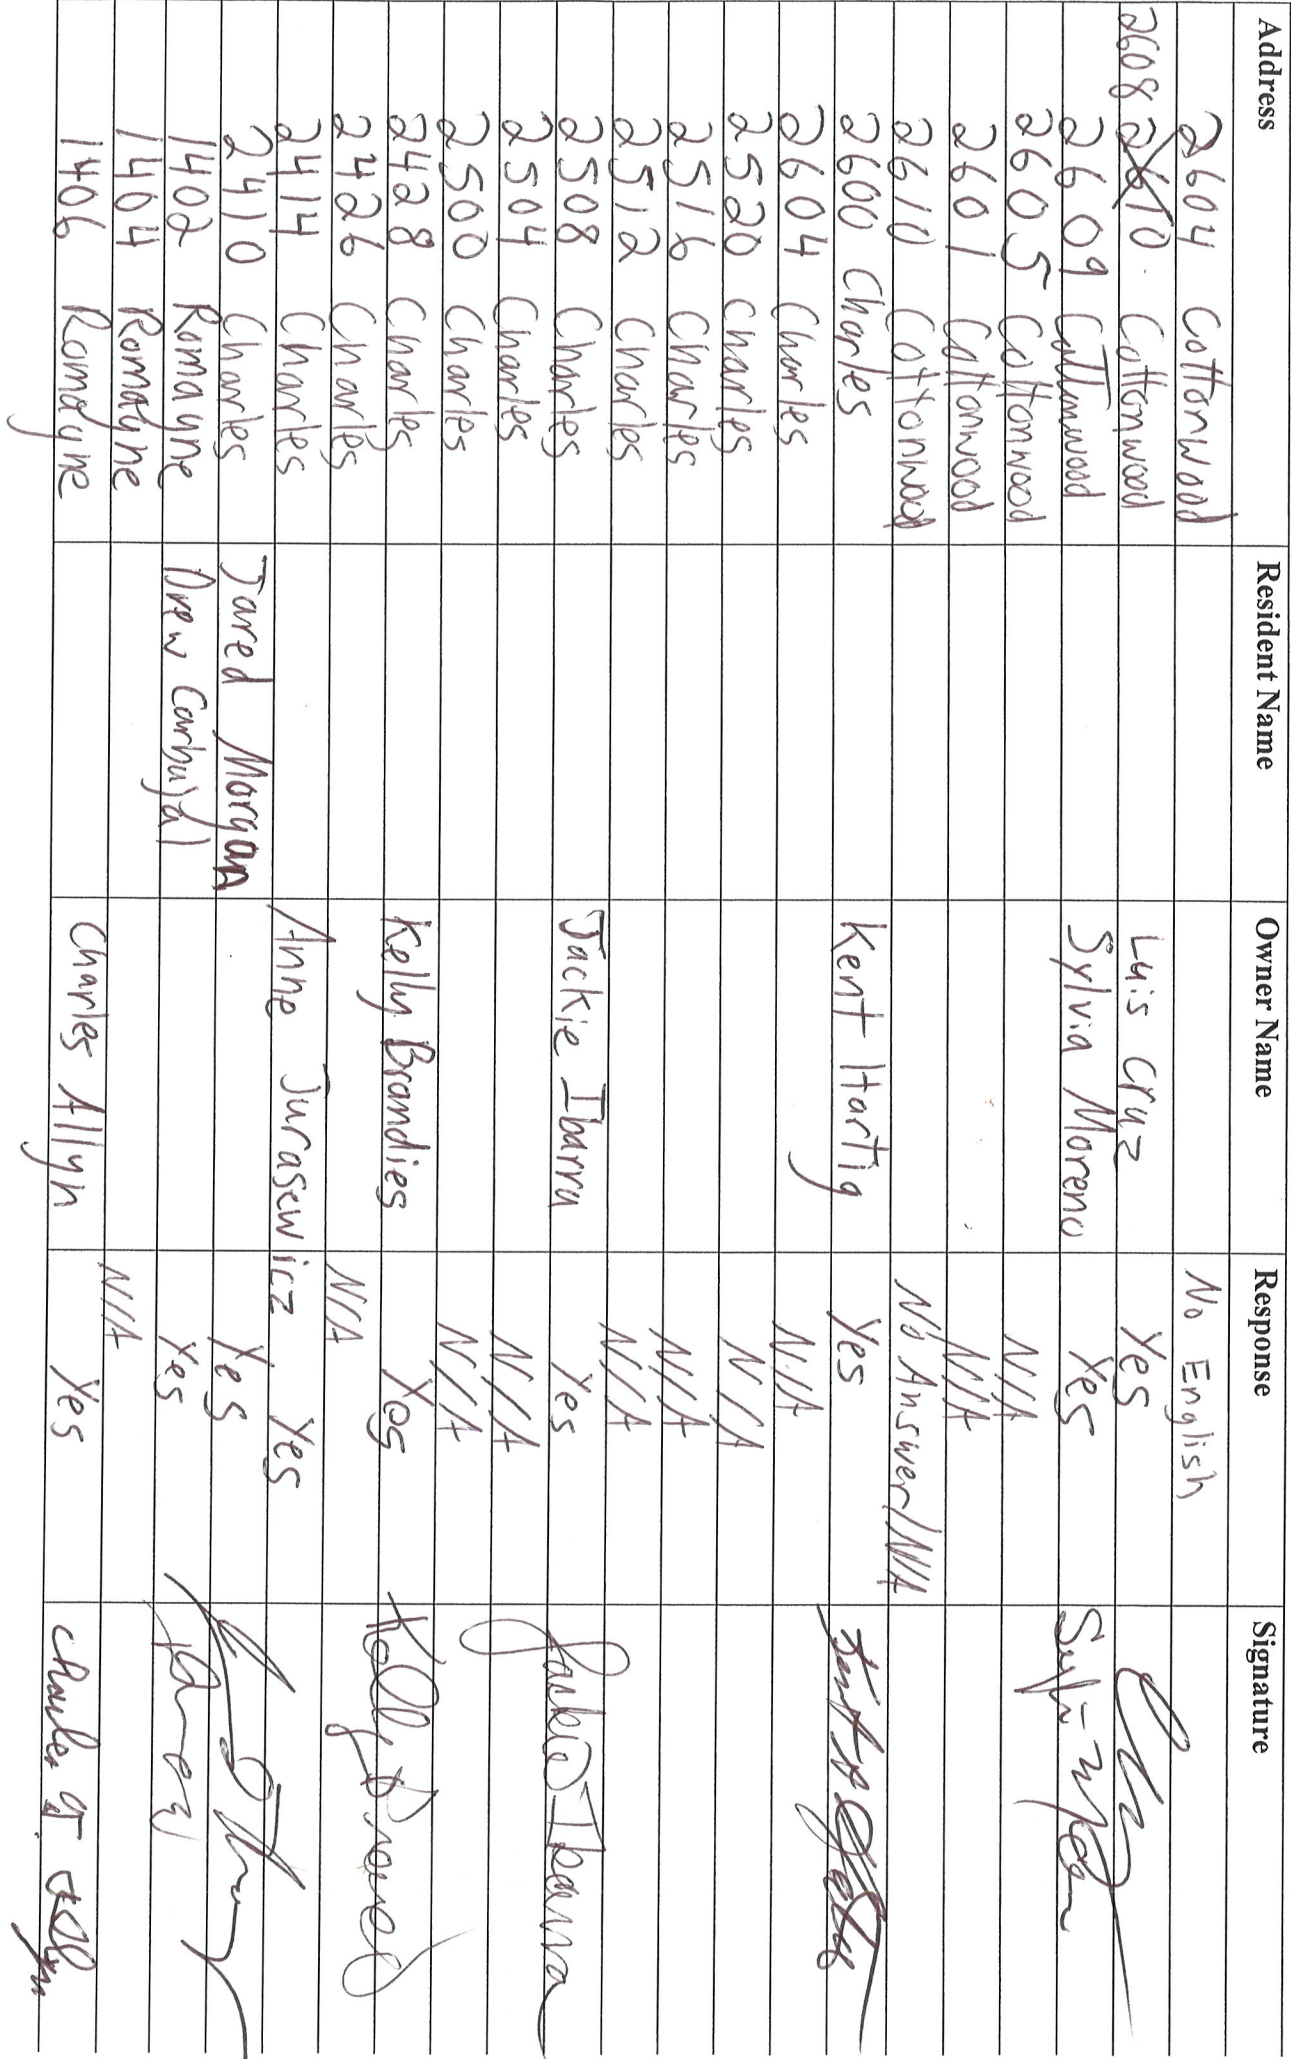 Address Resident Name Owner Name Response Signature
2604 Cottonwood No English
2608 2610 Cottonwood Luis Cruz Yes
2609 Cottonwood Sylvia Moreno Yes
2605 Cottonwood N/A
2601 Cottonwood N/A
2610 Cottonwood No Answer/N/A
2600 Charles Kent Hartig Yes
2604 Charles N/A
2520 Charles N/A
2516 Charles N/A
2512 Charles N/A
2508 Charles Jackie Ibarra Yes Jackie Ibarra
2504 Charles N/A
2500 Charles N/A
2428 Charles Kelly Brandies Yes Kelly
2426 Charles N/A
2414 Charles Anne Jurasewicz Yes
2410 Charles Jared Morgan Yes
1402 Romayne Drew Carbajal Yes
1404 Romayne N/A
1406 Romayne Charles Allyn Yes Charles J. Allyn